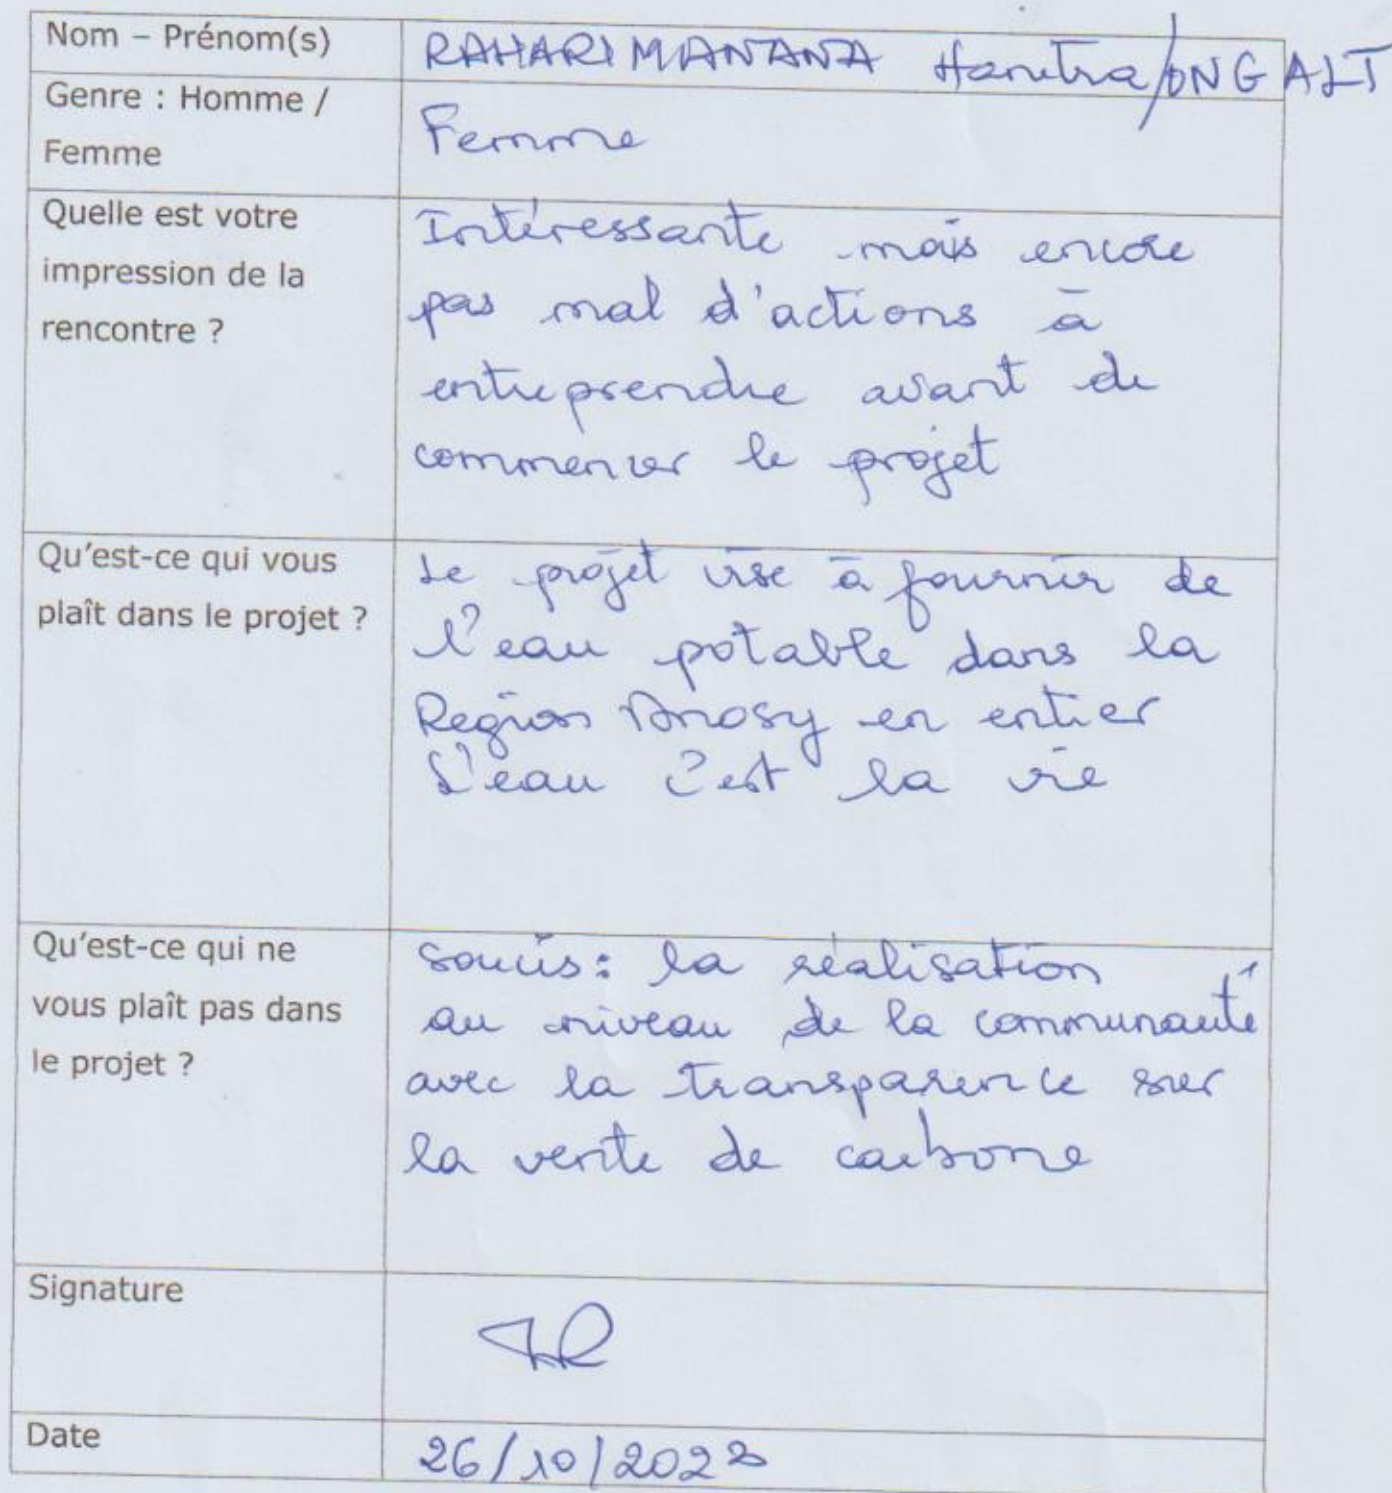 Nom – Prénom(s)
RAHARIMANANA Hanitra/ONG ALT
Genre : Homme /
Femme
Femme
Quelle est votre
impression de la
rencontre ?
Intéressante mais encore
pas mal d'actions à
entreprendre avant de
commencer le projet
Qu'est-ce qui vous
plaît dans le projet ?
Le projet vise à fournir de
l'eau potable dans la
Region Anosy en entier
L'eau c'est la vie
Qu'est-ce qui ne
vous plaît pas dans
le projet ?
Soucis: la réalisation
au niveau de la communauté
avec la transparence sur
la vente de carbone
Signature
Date
26/10/2022